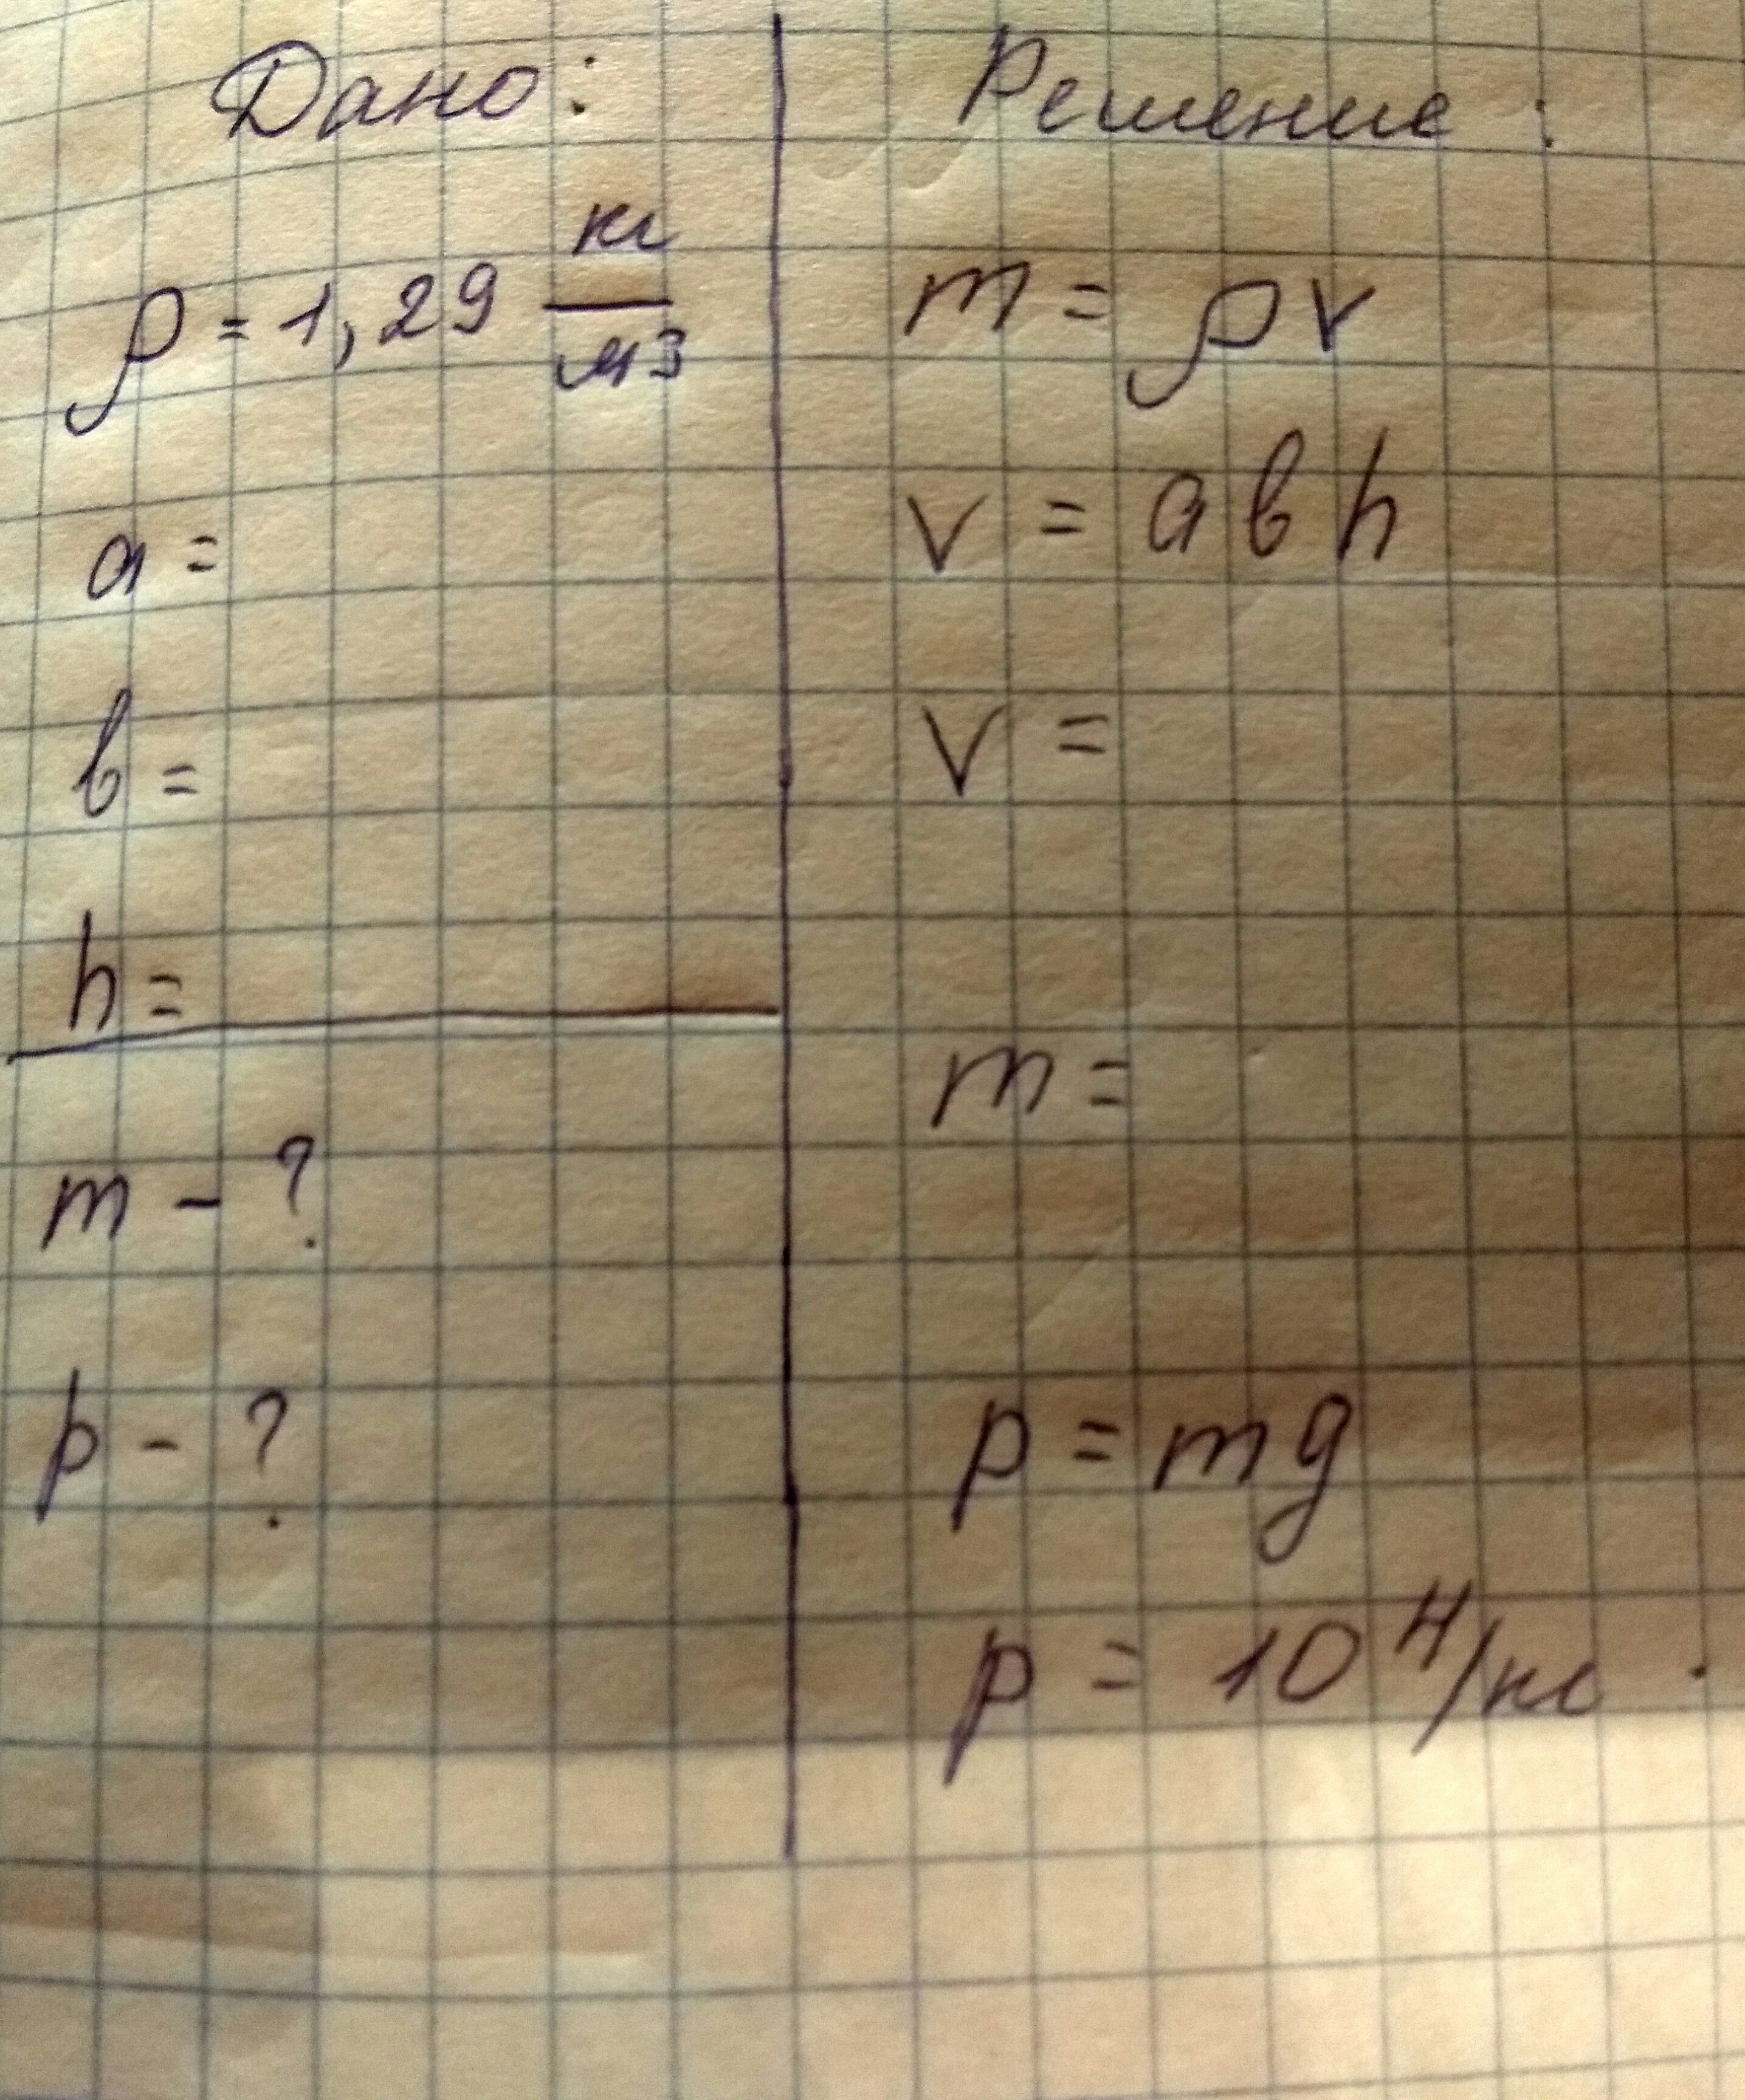 Дано:
ρ = 1,29 кг/м³
a =
b =
h =
m - ?
p - ?
Решение:
m = ρv
v = a b h
v =
m =
p = mg
p = 10 Н/кг ·